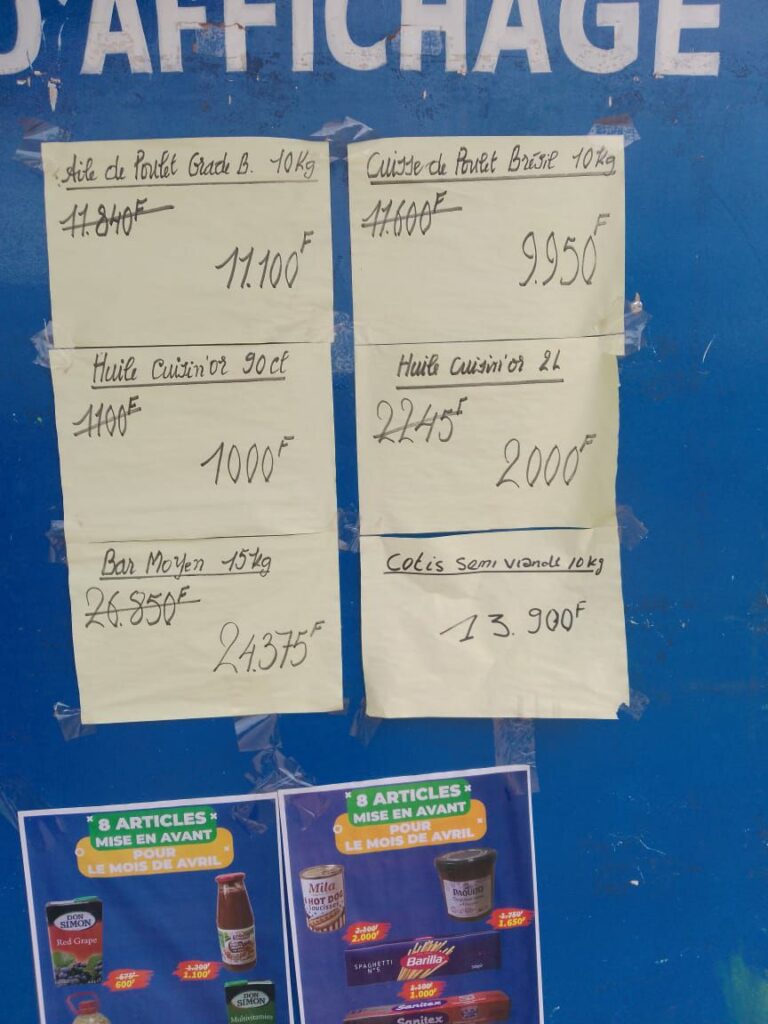 D'AFFICHAGE
Aile de Poulet Grade B. 10Kg
11.840F
11.100F
Cuisse de Poulet Brésil 10kg
11.600F
9.950F
Huile Cuisin'or 90cl
1100F
1000F
Huile Cuisin'or 2L
2245F
2000F
Bar Moyen 15kg
26.850F
24.375F
Cotis semi viande 10kg
13.900F
8 ARTICLES
MISE EN AVANT
POUR
LE MOIS DE AVRIL
DON
SIMON
Red Grape
675F
600F
1.200F
1.100F
DON
SIMON
Multivitamines
8 ARTICLES
MISE EN AVANT
POUR
LE MOIS DE AVRIL
Mila
HOT DOG
2.100F
2.000F
PAQUITO
1.750F
1.650F
SPAGHETTI
N°5
Barilla
1.100F
1.000F
Sanitex